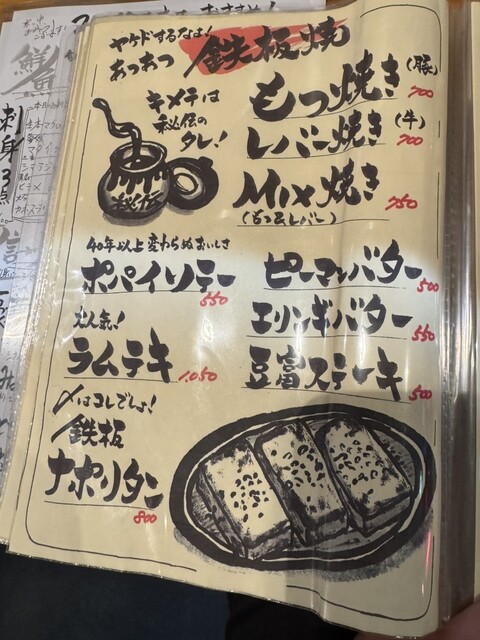 ヤケドするなよ!
あっあつ
鉄板焼
キメテは
秘伝の
タレ!
秘伝
もつ焼き(豚)
700
レバー焼き(牛)
700
Mix焼き
(もつ&レバー)
750
40年以上変わらぬおいしさ
ポパイソテー
550
ピーマンバター
500
エリンギバター
550
大人気!
ラムテキ
1.050
豆富ステーキ
500
〆はコレでしょ!
鉄板
ナポリタン
800
鮮魚
刺身3点